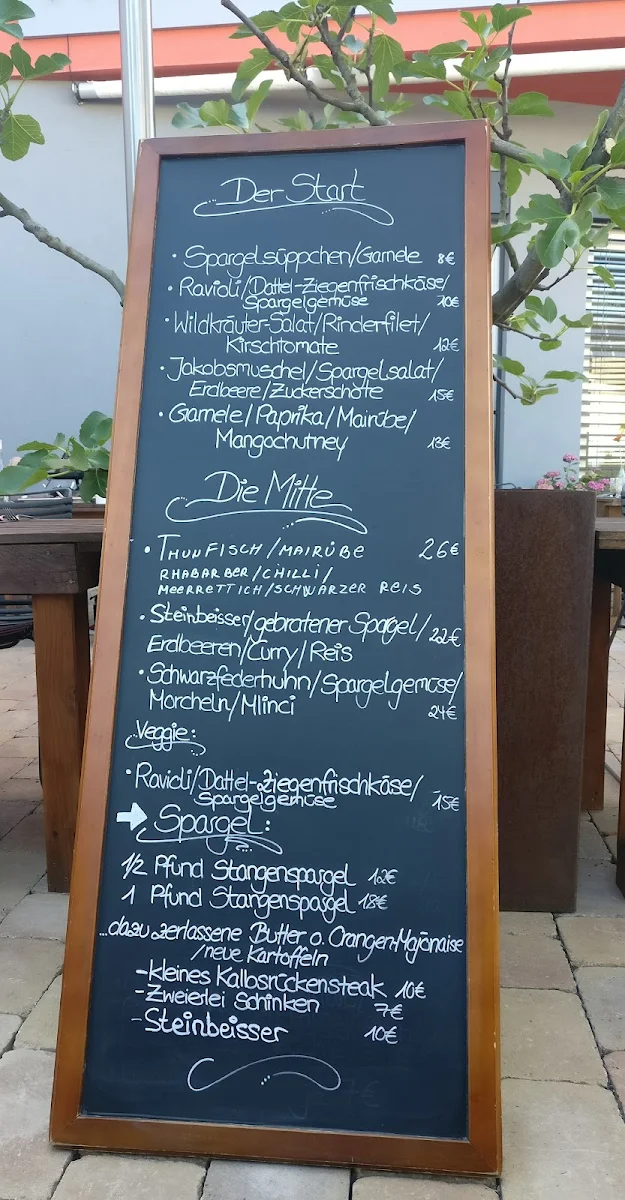 Der Start
· Spargelsüppchen/Garnele 8€
· Ravioli/Dattel-Ziegenfrischkäse/
Spargelgemüse 10€
· Wildkräuter-Salat/Rinderfilet/
Kirschtomate 12€
· Jakobsmuschel/Spargelsalat/
Erdbeere/Zuckerschote 15€
· Garnele/Paprika/Mairübe/
Mangochutney 13€
Die Mitte
· THUNFISCH/MAIRÜBE 26€
RHABARBER/CHILLI/
MEERRETTICH/SCHWARZER REIS
· Steinbeisser/gebratener Spargel/ 22€
Erdbeeren/Curry/Reis
· Schwarzfederhuhn/Spargelgemüse/
Morcheln/Mlinci 24€
Veggie:
· Ravioli/Dattel-Ziegenfrischkäse/
Spargelgemüse 15€
Spargel:
1/2 Pfund Stangenspargel 12€
1 Pfund Stangenspargel 18€
...dazu zerlassene Butter o. Orangen-Majonaise
/neue Kartoffeln
-kleines Kalbsrückensteak 10€
-Zweierlei Schinken 7€
-Steinbeisser 10€